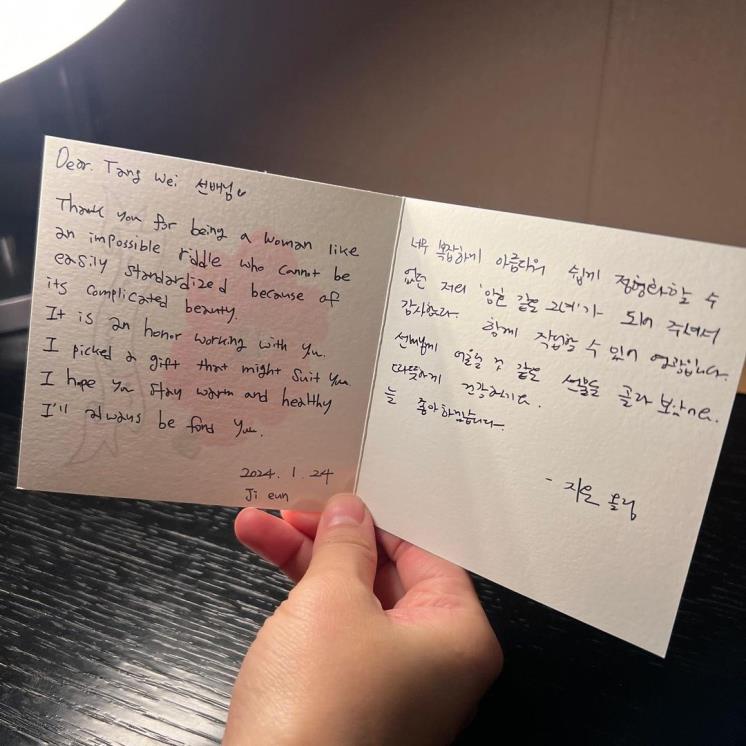 Dear. Tang Wei 선배님
Thank you for being a woman like
an impossible riddle who cannot be
easily standardized because of
its complicated beauty.
It is an honor working with you.
I picked a gift that might suit you.
I hope you stay warm and healthy
I'll always be fond you.
2024. 1. 24
Ji eun
너무 복잡하게 아름다워 쉽게 정형화할 수
없는 저의 '암호 같은 그녀'가 되어 주셔서
감사합니다. 함께 작업할 수 있어 영광입니다.
선배님께 어울릴 것 같은 선물을 골라 보았어요.
따뜻하게 건강하시고.
늘 좋아하겠습니다.
- 지은 올림